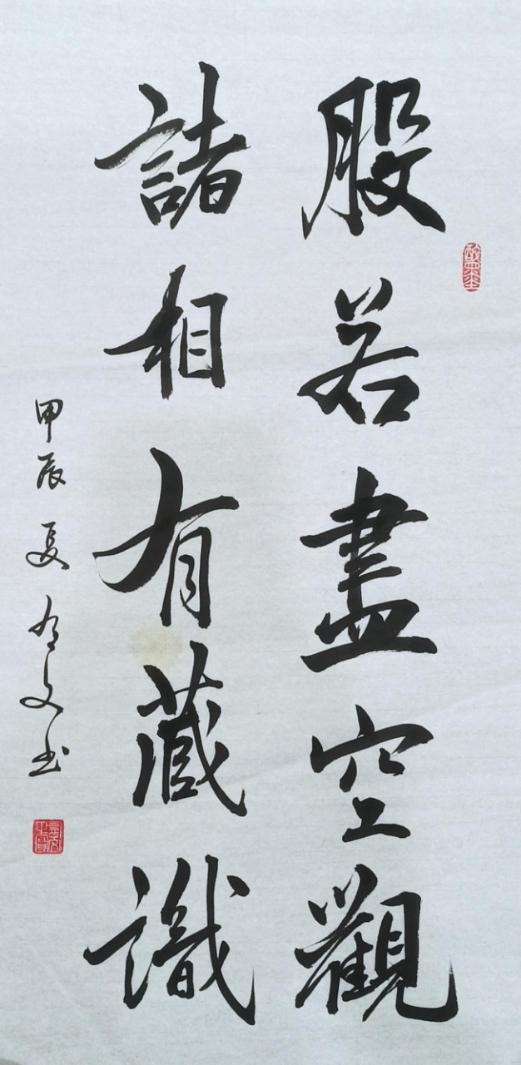 股若盡空觀
諸相有藏識
甲辰夏有文书